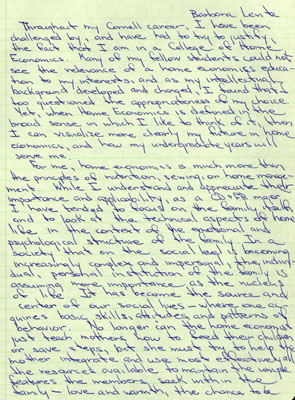 Barbara
Throughout my Cornell career I have been
challenged by, and have had to try to justify
the fact that I am in a College of Home
Economics. Many of my fellow students could not
see the relevance of a home economics educa-
tion to my interests and as my intellectual
background developed and changed, I found that I
too questioned the appropriateness of my choice
Yet, when Home Economics is defined in the
broad sense in which I like to think of it, then
I can visualize more clearly my future in home
economics, and how my undergraduate years will
serve me.
For me, home economics is much more than
the principles of nutrition, sewing, or home manage-
ment. While I understand and appreciate their
importance and applicability, as a major
I have tended to focus on the family itself
and to look at the technical aspects of home
life in the context of the emotional and
psychological structure of the family. In a
society that on the social level is becoming
increasingly complex and impersonal, the indivi-
dual, personal institution of the family is
assuming more importance as the nucleus
of life. It has become the source and
center of our social lives - where one ac-
quires basic skills, attitudes, and patterns of
behavior. No longer can the home economist
just teach mothers how to feed their children
or save steps, but she must try to help the
mother integrate and use most effectively all
the resources available to maintain the unique
features the members seek within the
family - love and warmth, the chance to be